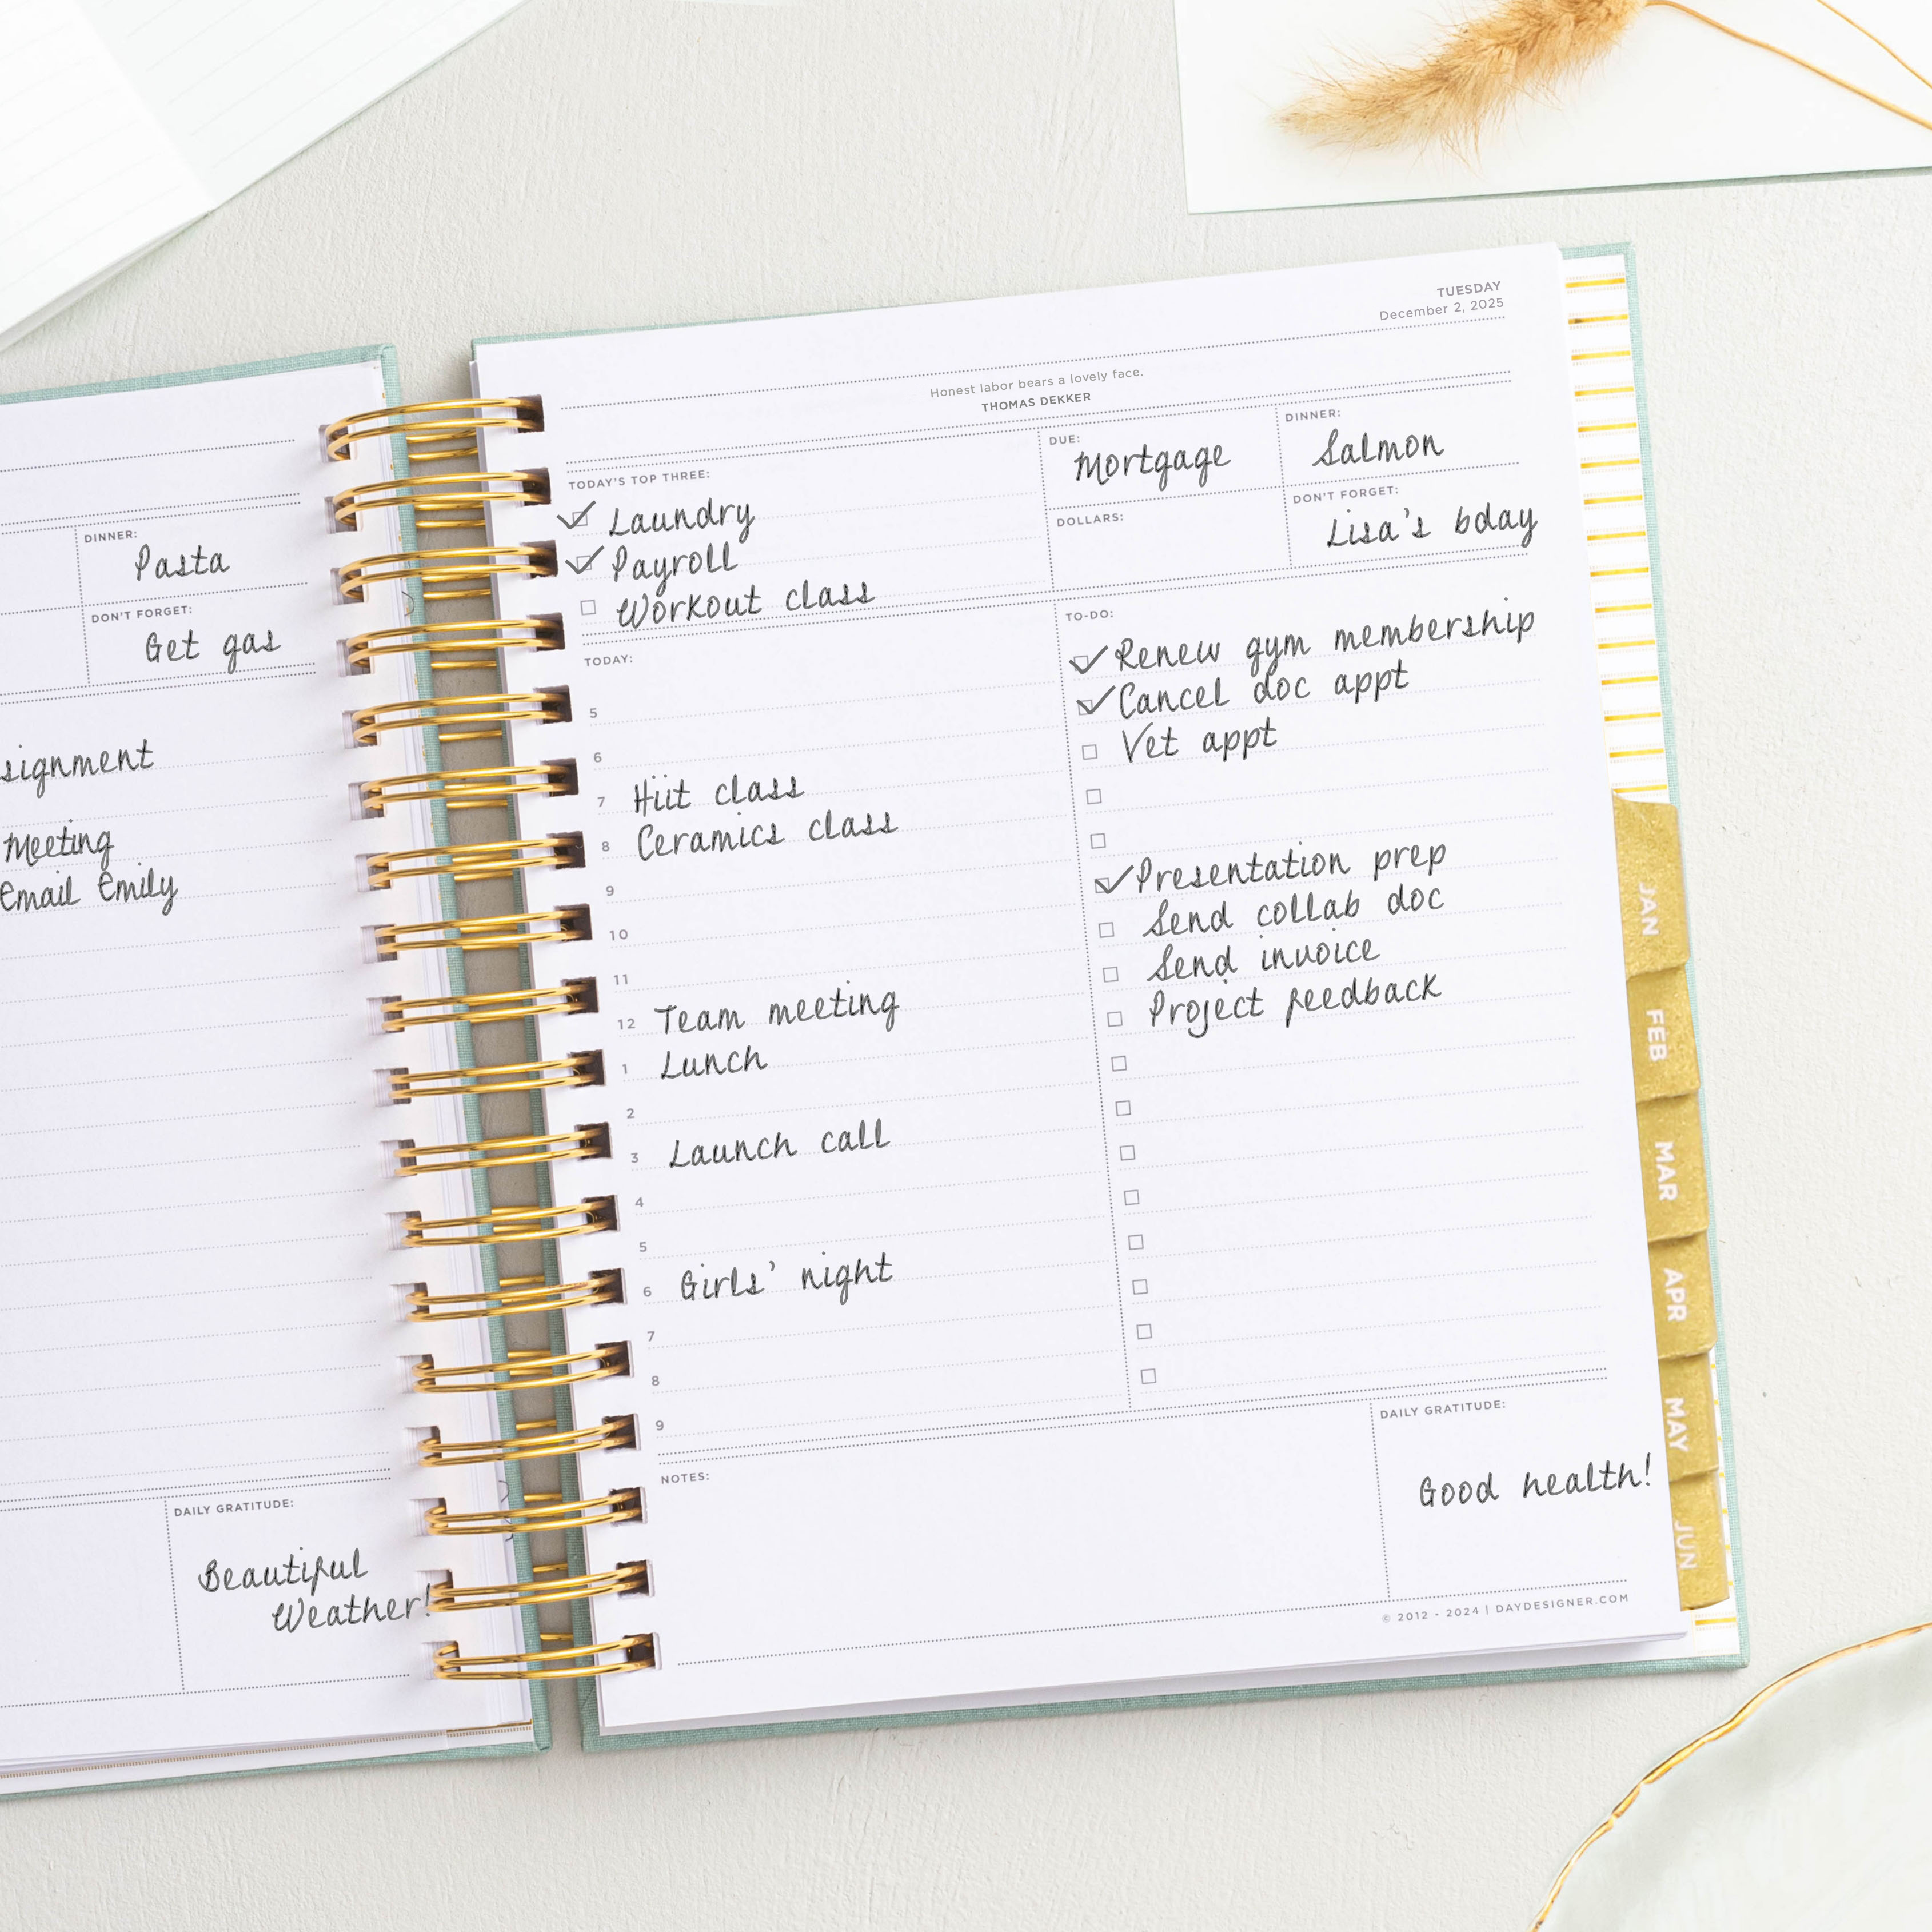 DINNER:
Pasta
DON'T FORGET:
Get gas
signment
Meeting
Email Emily
DAILY GRATITUDE:
Beautiful
Weather!
TUESDAY
December 2, 2025
Honest labor bears a lovely face.
THOMAS DEKKER
TODAY'S TOP THREE:
Laundry
Payroll
Workout class
DUE:
Mortgage
DINNER:
Salmon
DOLLARS:
DON'T FORGET:
Lisa's bday
TODAY:
5
6
7 Hiit class
8 Ceramics class
9
10
11
12 Team meeting
1 Lunch
2
3 Launch call
4
5
6 Girls' night
7
8
9
TO-DO:
Renew gym membership
Cancel doc appt
Vet appt
Presentation prep
Send collab doc
Send invoice
Project feedback
NOTES:
DAILY GRATITUDE:
Good health!
© 2012 - 2024 | DAYDESIGNER.COM
JAN
FEB
MAR
APR
MAY
JUN